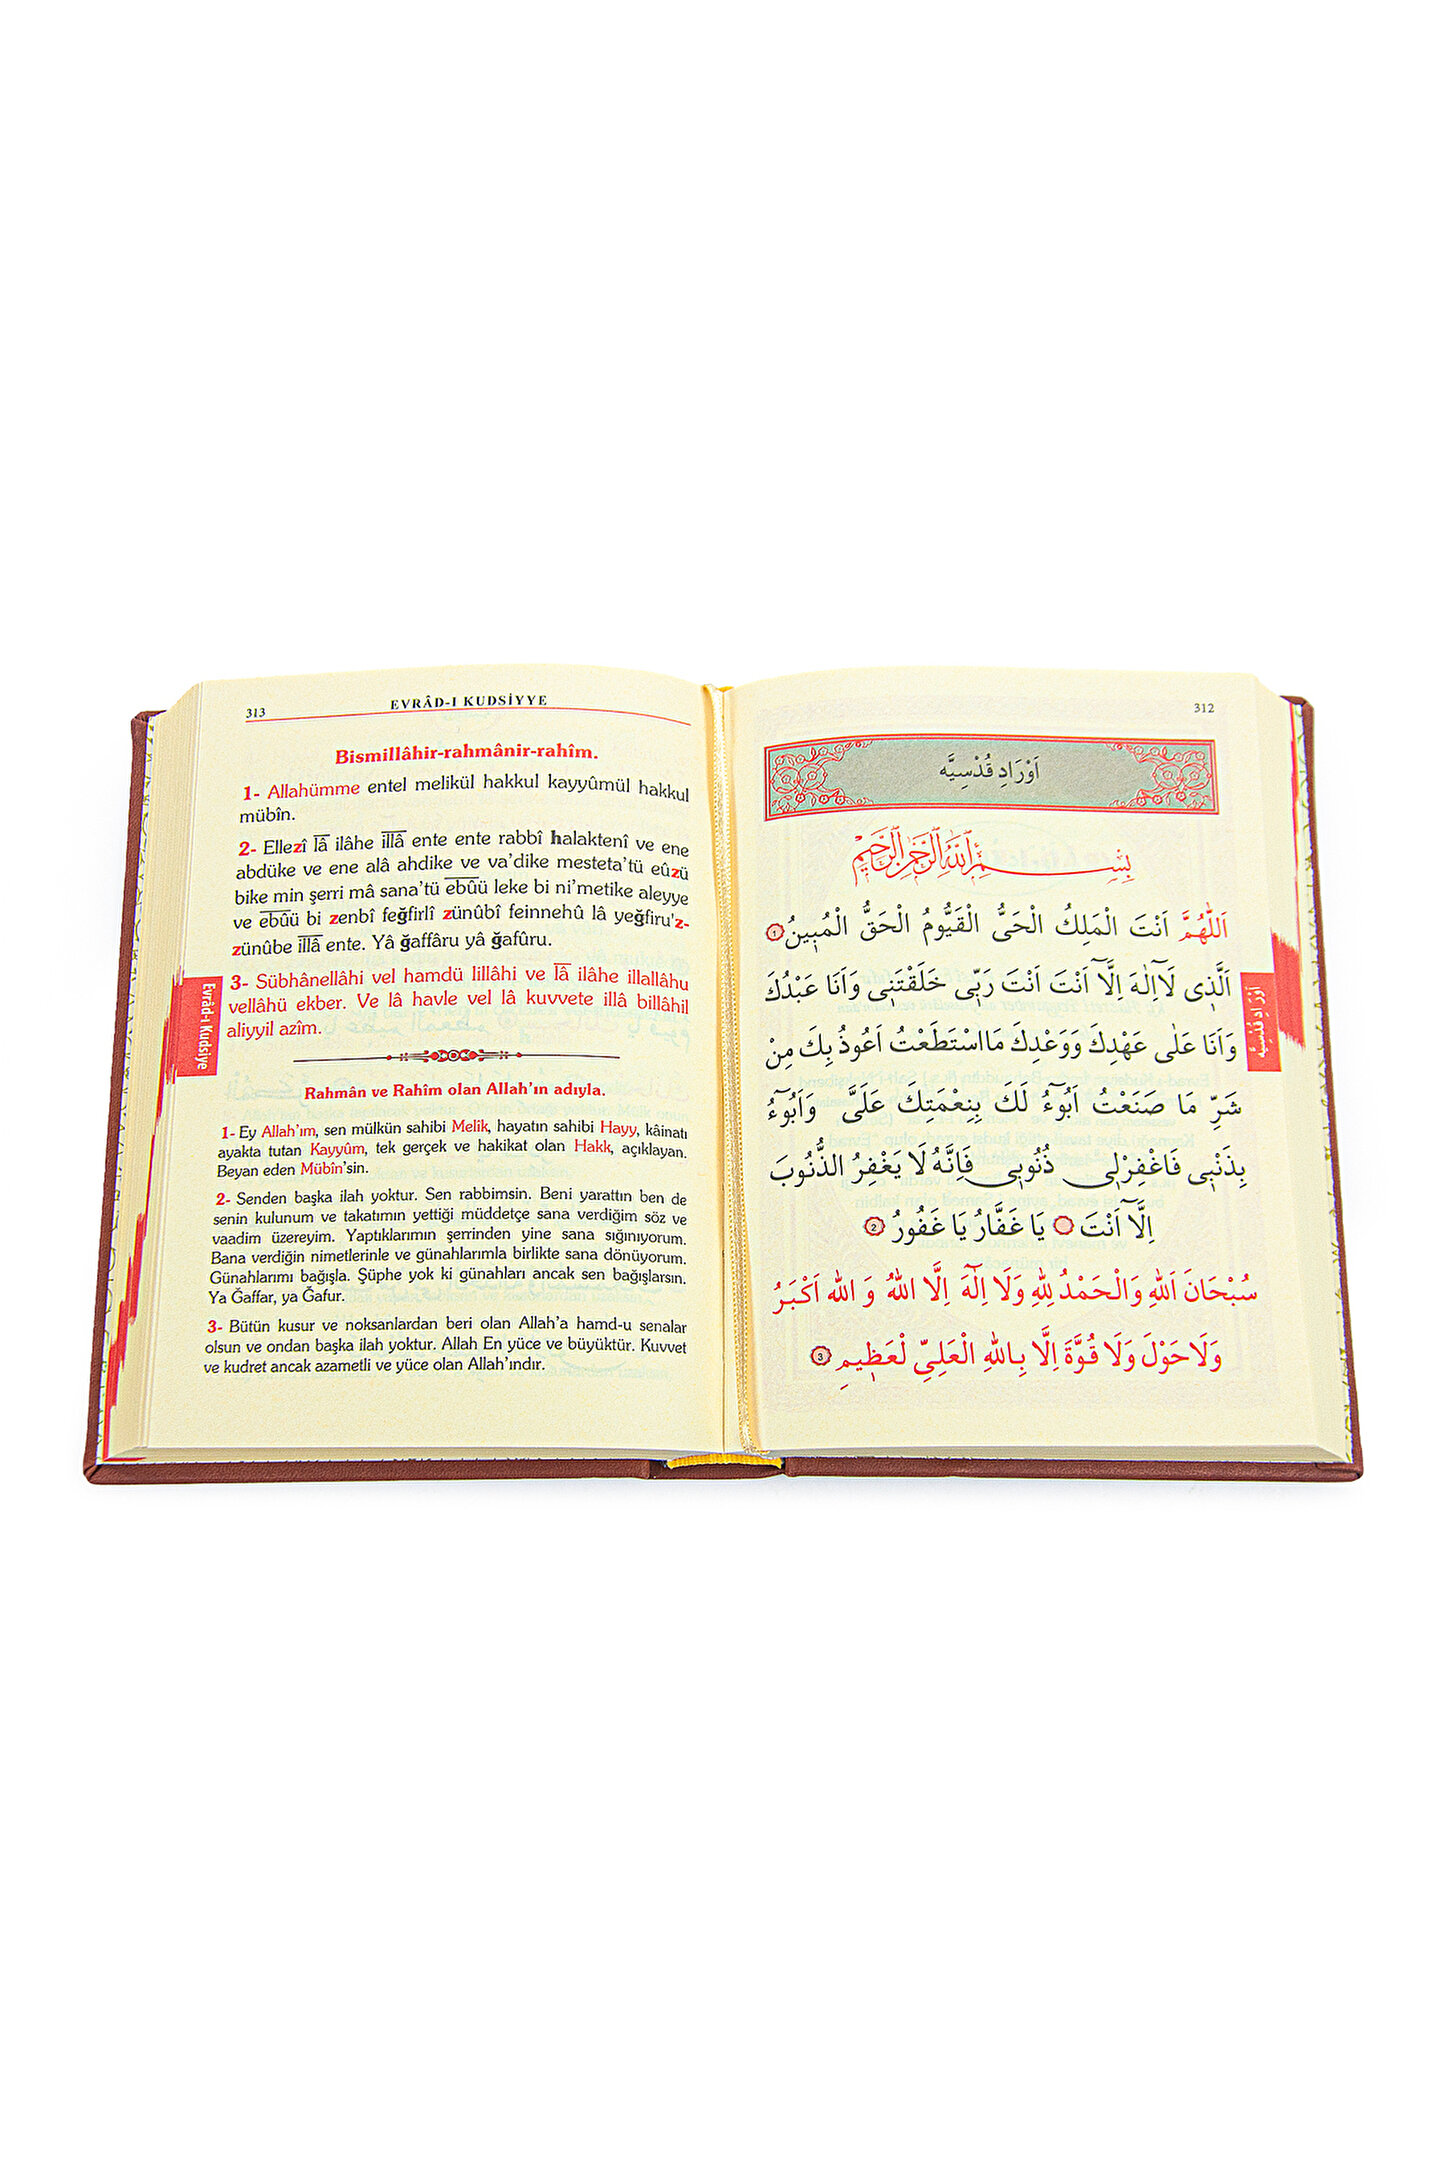 313
EVRÂD-I KUDSİYYE
Bismillâhir-rahmânir-rahîm.
1- Allahümme entel melikül hakkul kayyûmül hakkul
mübîn.
2- Ellezî lâ ilâhe illâ ente ente rabbî halaktenî ve ene
abdüke ve ene alâ ahdike ve va'dike mesteta'tü eûzü
bike min şerri mâ sana'tü ebûü leke bi ni'metike aleyye
ve ebûü bi zenbî feğfirlî zünûbî feinnehû lâ yeğfiru'z-
zünûbe illâ ente. Yâ ğaffâru yâ ğafûru.
3- Sübhânellâhi vel hamdü lillâhi ve lâ ilâhe illallâhu
vellâhü ekber. Ve lâ havle vel lâ kuvvete illâ billâhil
aliyyil azîm.
Evrâd-ı Kudsiye
Rahmân ve Rahîm olan Allah'ın adıyla.
1- Ey Allah'ım, sen mülkün sahibi Melik, hayatın sahibi Hayy, kâinatı
ayakta tutan Kayyûm, tek gerçek ve hakikat olan Hakk, açıklayan.
Beyan eden Mübîn'sin.
2- Senden başka ilah yoktur. Sen rabbimsin. Beni yarattın ben de
senin kulunum ve takatımın yettiği müddetçe sana verdiğim söz ve
vaadim üzereyim. Yaptıklarımın şerrinden yine sana sığınıyorum.
Bana verdiğin nimetlerinle ve günahlarımla birlikte sana dönüyorum.
Günahlarımı bağışla. Şüphe yok ki günahları ancak sen bağışlarsın.
Ya Ğaffar, ya Ğafur.
3- Bütün kusur ve noksanlardan beri olan Allah'a hamd-u senalar
olsun ve ondan başka ilah yoktur. Allah En yüce ve büyüktür. Kuvvet
ve kudret ancak azametli ve yüce olan Allah'ındır.
312
اَوْرَادِ قُدْسِيَّه
بِسْمِ اللّٰهِ الرَّحْمٰنِ الرَّحِيمِ
اَللّٰهُمَّ اَنْتَ الْمَلِكُ الْحَىُّ الْقَيُّومُ الْحَقُّ الْمُبٖينُ 1
اَلَّذٖى لَآاِلٰهَ اِلَّٓا اَنْتَ اَنْتَ رَبّٖى خَلَقْتَنٖى وَاَنَا عَبْدُكَ
وَاَنَا عَلٰى عَهْدِكَ وَوَعْدِكَ مَااسْتَطَعْتُ اَعُوذُ بِكَ مِنْ
شَرِّ مَا صَنَعْتُ اَبُوٓءُ لَكَ بِنِعْمَتِكَ عَلَىَّ وَاَبُوٓءُ
بِذَنْبٖى فَاغْفِرْلٖى ذُنُوبٖى فَاِنَّهُ لَا يَغْفِرُ الذُّنُوبَ
اِلَّٓا اَنْتَ يَا غَفَّارُ يَا غَفُورُ 2
سُبْحَانَ اَللّٰهِ وَالْحَمْدُ لِلّٰهِ وَلَا اِلٰهَ اِلَّا اللّٰهُ وَ اللّٰه اَكْبَرُ
وَلَاحَوْلَ وَلَا قُوَّةَ اِلَّا بِاللّٰهِ الْعَلِىِّ لْعَظٖيمِ 3
اَوْرَادِ قُدْسِيَّه